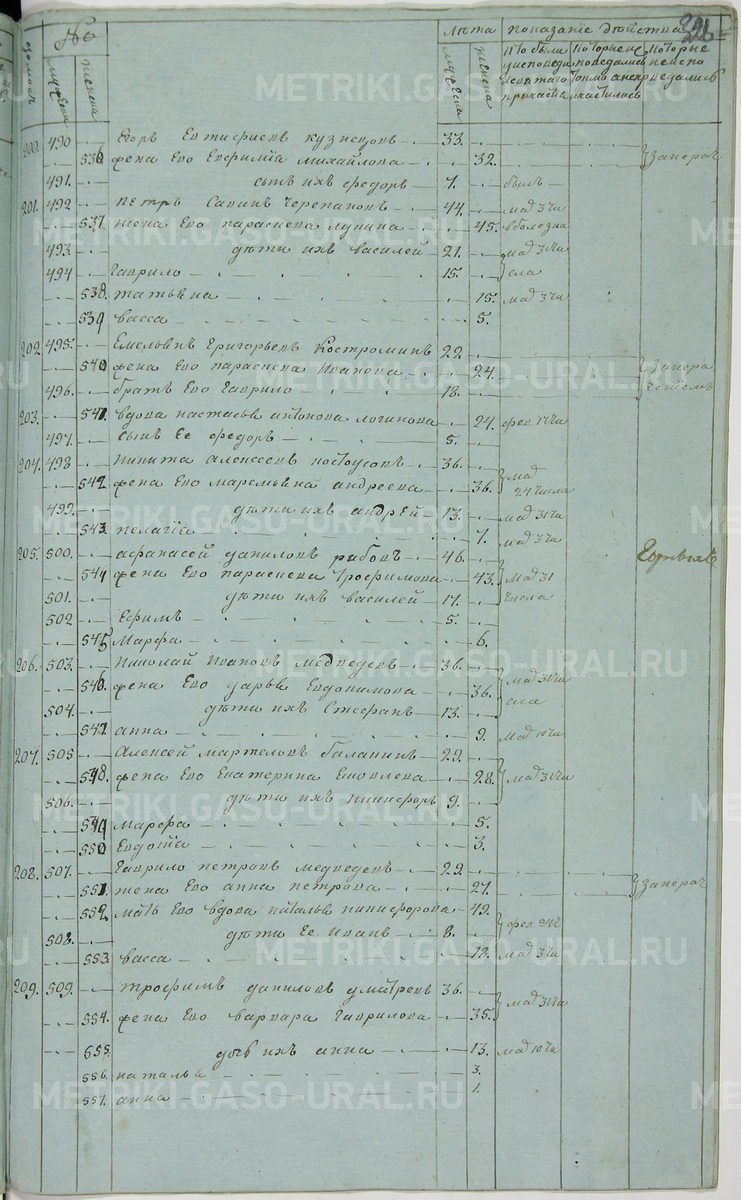 №
Лѣта показанiе дѣйства
домовъ мужеска женска мужеска женска кто были у исповеди и святаго причастiя которые исповедались токмо а не причастились которые не исповедались
200. 490 Егоръ Евтифиевъ кузнецовъ 33.
536 жена Его Евфимiа михайлова 32. занерач
491. сынъ ихъ федоръ 7. былъ
201. 492 петръ Савинъ черепановъ 44. мая 3 чи
537 жена Его параскева лукина 45. вболезни
493. дѣти ихъ василей 21. мая 31 чи
494 Гаврило 15. сла
538. татьяна 15. мая 3 чи
539 васса 5.
202. 495. Емельянъ Григорьевъ Костроминъ 22
540 жена Его параскева Иванова 24. занера
496. братъ Его Гаврило 18. ченiомъ
203. 541 вдова настасья антонова логинова 24. фев 17 чи
497. сынъ Ее федоръ 5.
204. 498 никита алексеевъ постоусовъ 36. мая
542 жена Его маремьяна андреева 36. 24 числа
499. дѣти их андрей 13. мая 31 чи
543. пелагiа 7. мая 3 чи
205. 500. афанасей даниловъ рабовъ 46.
544 жена Его параскева Трофимова 43. мая 31
501. дѣти ихъ василей 17. числа
502 Ефимъ 5.
545 Марфа 6.
206. 503. Николай Ивановъ медведевъ 36. мая 31 чи
546. жена Его дарья Евдокимова 36. сла
504. дѣти ихъ Стефанъ 13.
547 анна 9. мая 10 чи
207. 505 Алексей мартемовъ баланинъ 29.
548. жена Его Екатерина Еяковлева 28. мая 31 чи
506. дѣти ихъ никифоръ 9.
549 Марфа 5.
550 Евдотiа 3.
208. 507. Гаврило петровъ медведевъ 29.
551. жена Его анна петрова 27. занерач
552 мать Его вдова наталья никифорова 49. фев 24 ч
508. дѣти Ее Иванъ 8.
553. васса 12. мая 3 чи
209. 509. трофимъ даниловъ дмитревъ 36. мая 31 чи
554. жена Его варвара Гаврилова 35.
555. дочь ихъ анна 13. мая 10 чи
556. наталья 3.
557. анна 1.
METRIKI.GASO-URAL.RU